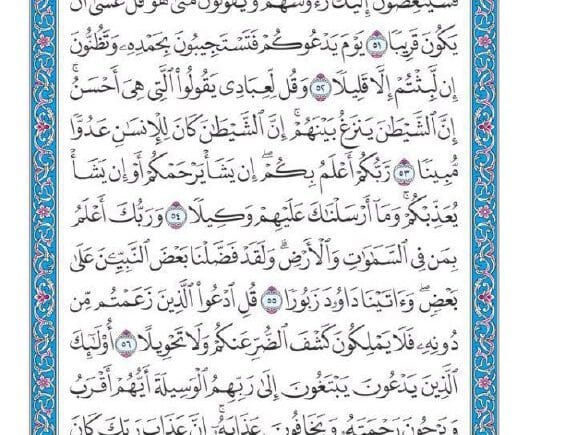 فَسَيُنْغِضُونَ إِلَيْكَ رُءُوسَهُمْ وَيَقُولُونَ مَتَىٰ هُوَ قُلْ عَسَىٰ أَن
يَكُونَ قَرِيبًا ٥١ يَوْمَ يَدْعُوكُمْ فَتَسْتَجِيبُونَ بِحَمْدِهِۦ وَتَظُنُّونَ
إِن لَّبِثْتُمْ إِلَّا قَلِيلًا ٥٢ وَقُل لِّعِبَادِى يَقُولُوا۟ ٱلَّتِى هِىَ أَحْسَنُ ۚ
إِنَّ ٱلشَّيْطَٰنَ يَنزَغُ بَيْنَهُمْ ۚ إِنَّ ٱلشَّيْطَٰنَ كَانَ لِلْإِنسَٰنِ عَدُوًّا
مُّبِينًا ٥٣ رَّبُّكُمْ أَعْلَمُ بِكُمْ ۖ إِن يَشَأْ يَرْحَمْكُمْ أَوْ إِن يَشَأْ
يُعَذِّبْكُمْ ۚ وَمَآ أَرْسَلْنَٰكَ عَلَيْهِمْ وَكِيلًا ٥٤ وَرَبُّكَ أَعْلَمُ
بِمَن فِى ٱلسَّمَٰوَٰتِ وَٱلْأَرْضِ ۗ وَلَقَدْ فَضَّلْنَا بَعْضَ ٱلنَّبِيِّـۧنَ عَلَىٰ
بَعْضٍ ۖ وَءَاتَيْنَا دَاوُۥدَ زَبُورًا ٥٥ قُلِ ٱدْعُوا۟ ٱلَّذِينَ زَعَمْتُم مِّن
دُونِهِۦ فَلَا يَمْلِكُونَ كَشْفَ ٱلضُّرِّ عَنكُمْ وَلَا تَحْوِيلًا ٥٦ أُو۟لَٰٓئِكَ
ٱلَّذِينَ يَدْعُونَ يَبْتَغُونَ إِلَىٰ رَبِّهِمُ ٱلْوَسِيلَةَ أَيُّهُمْ أَقْرَبُ
وَيَرْجُونَ رَحْمَتَهُۥ وَيَخَافُونَ عَذَابَهُۥٓ ۚ إِنَّ عَذَابَ رَبِّكَ كَانَ